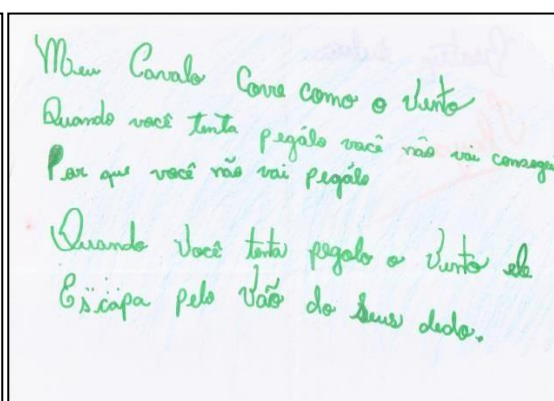 Meu Cavalo Corre como o Vento
Quando você tenta pegálo você não vai consegui
Por que você não vai pegálo
Quando você tenta pegalo o Vento ele
Escapa pelo Vaõ do seus dedo.